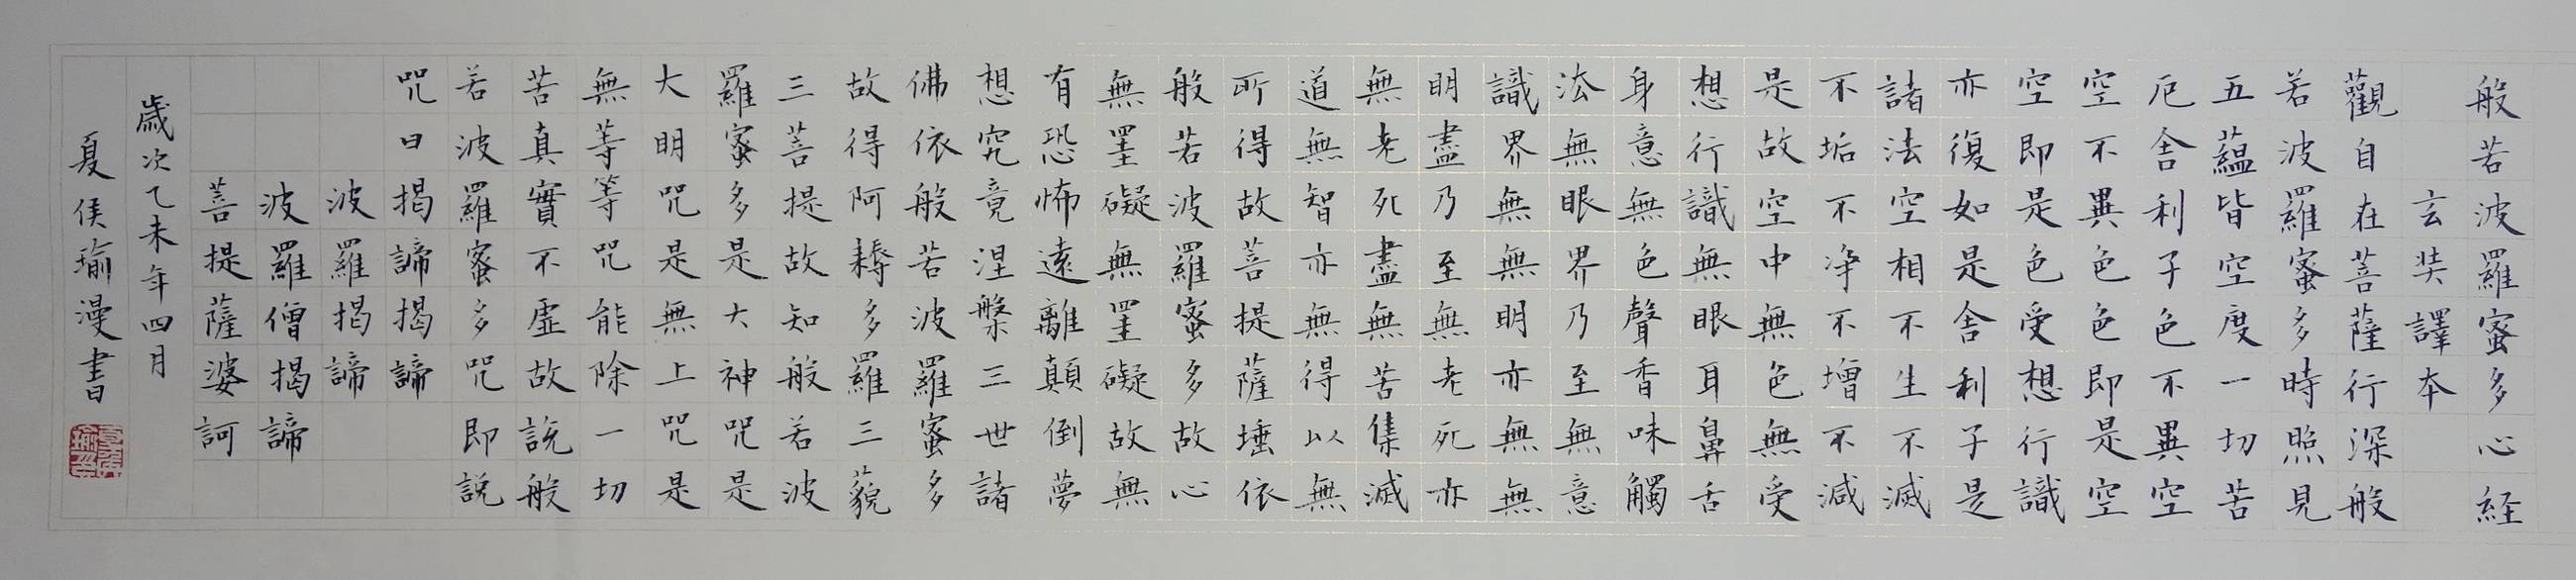 般若波羅蜜多心経
玄奘譯本
觀自在菩薩行深般
若波羅蜜多時照見
五蘊皆空度一切苦
厄舍利子色不異空
空不異色色即是空
空即是色受想行識
亦復如是舍利子是
諸法空相不生不滅
不垢不淨不增不減
是故空中無色無受
想行識無眼耳鼻舌
身意無色聲香味觸
法無眼界乃至無意
識界無無明亦無無
明盡乃至無老死亦
無老死盡無苦集滅
道無智亦無得以無
所得故菩提薩埵依
般若波羅蜜多故心
無罣礙無罣礙故無
有恐怖遠離顛倒夢
想究竟涅槃三世諸
佛依般若波羅蜜多
故得阿耨多羅三藐
三菩提故知般若波
羅蜜多是大神咒是
大明咒是無上咒是
無等等咒能除一切
苦真實不虛故說般
若波羅蜜多咒即說
咒曰揭諦揭諦
波羅揭諦
波羅僧揭諦
菩提薩婆訶
歲次乙未年四月
夏侯瑜漫書